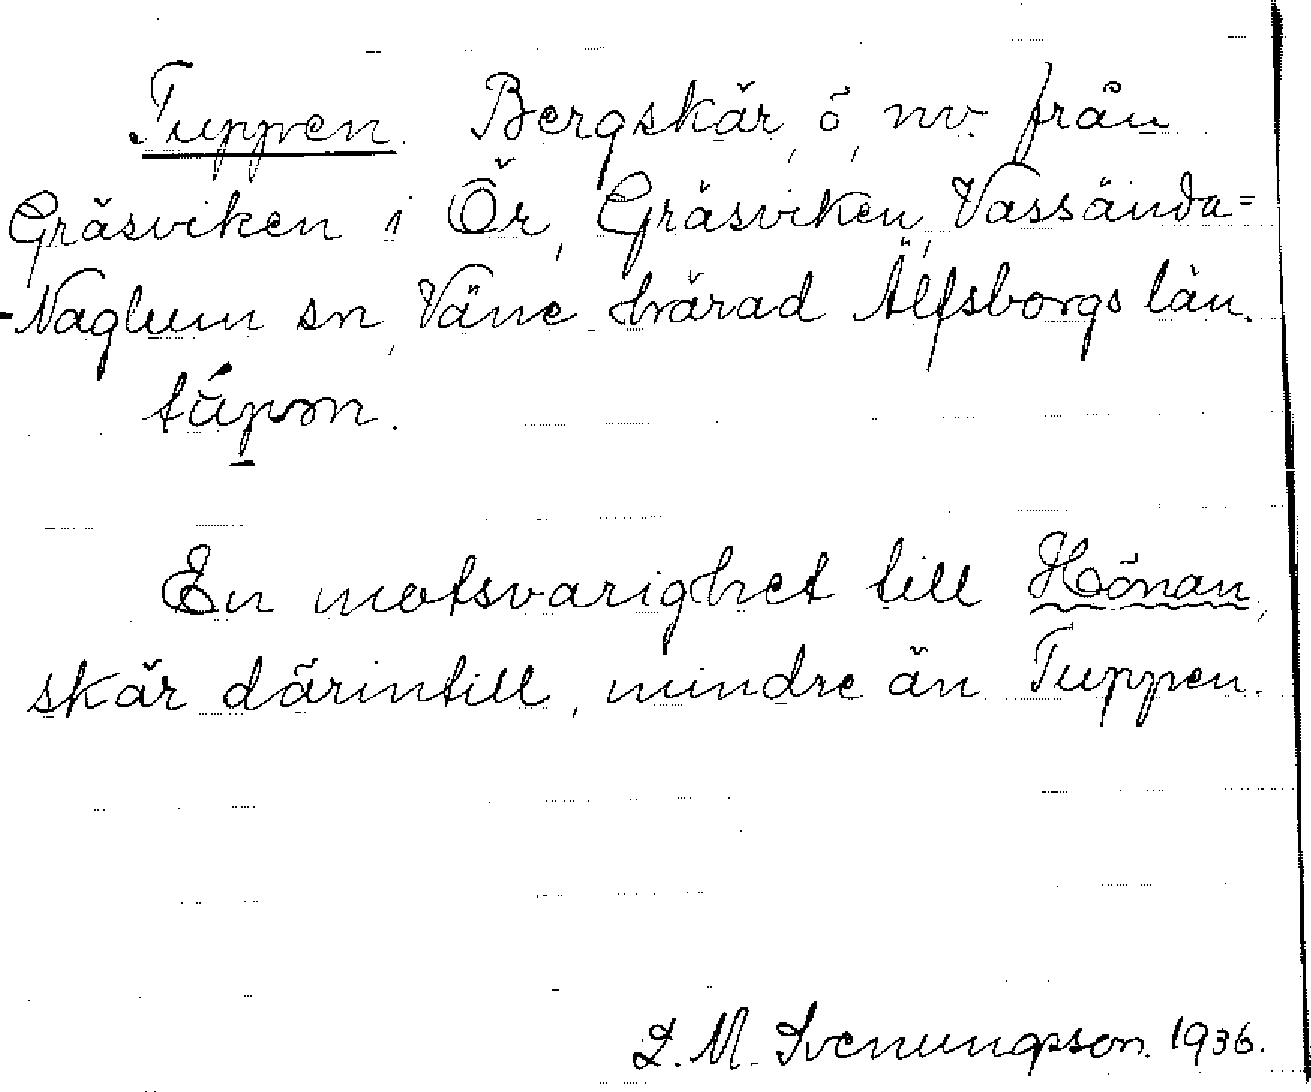 Tuppen. Bergskär, ö, nv. från
Gräsviken i Ör, Gräsviken, Vassända=
-Naglum sn, Väne härad Älfsborgs län.
En motsvarighet till Hönan,
skär därintill, mindre än Tuppen.
L. M. Svenungsson. 1936.